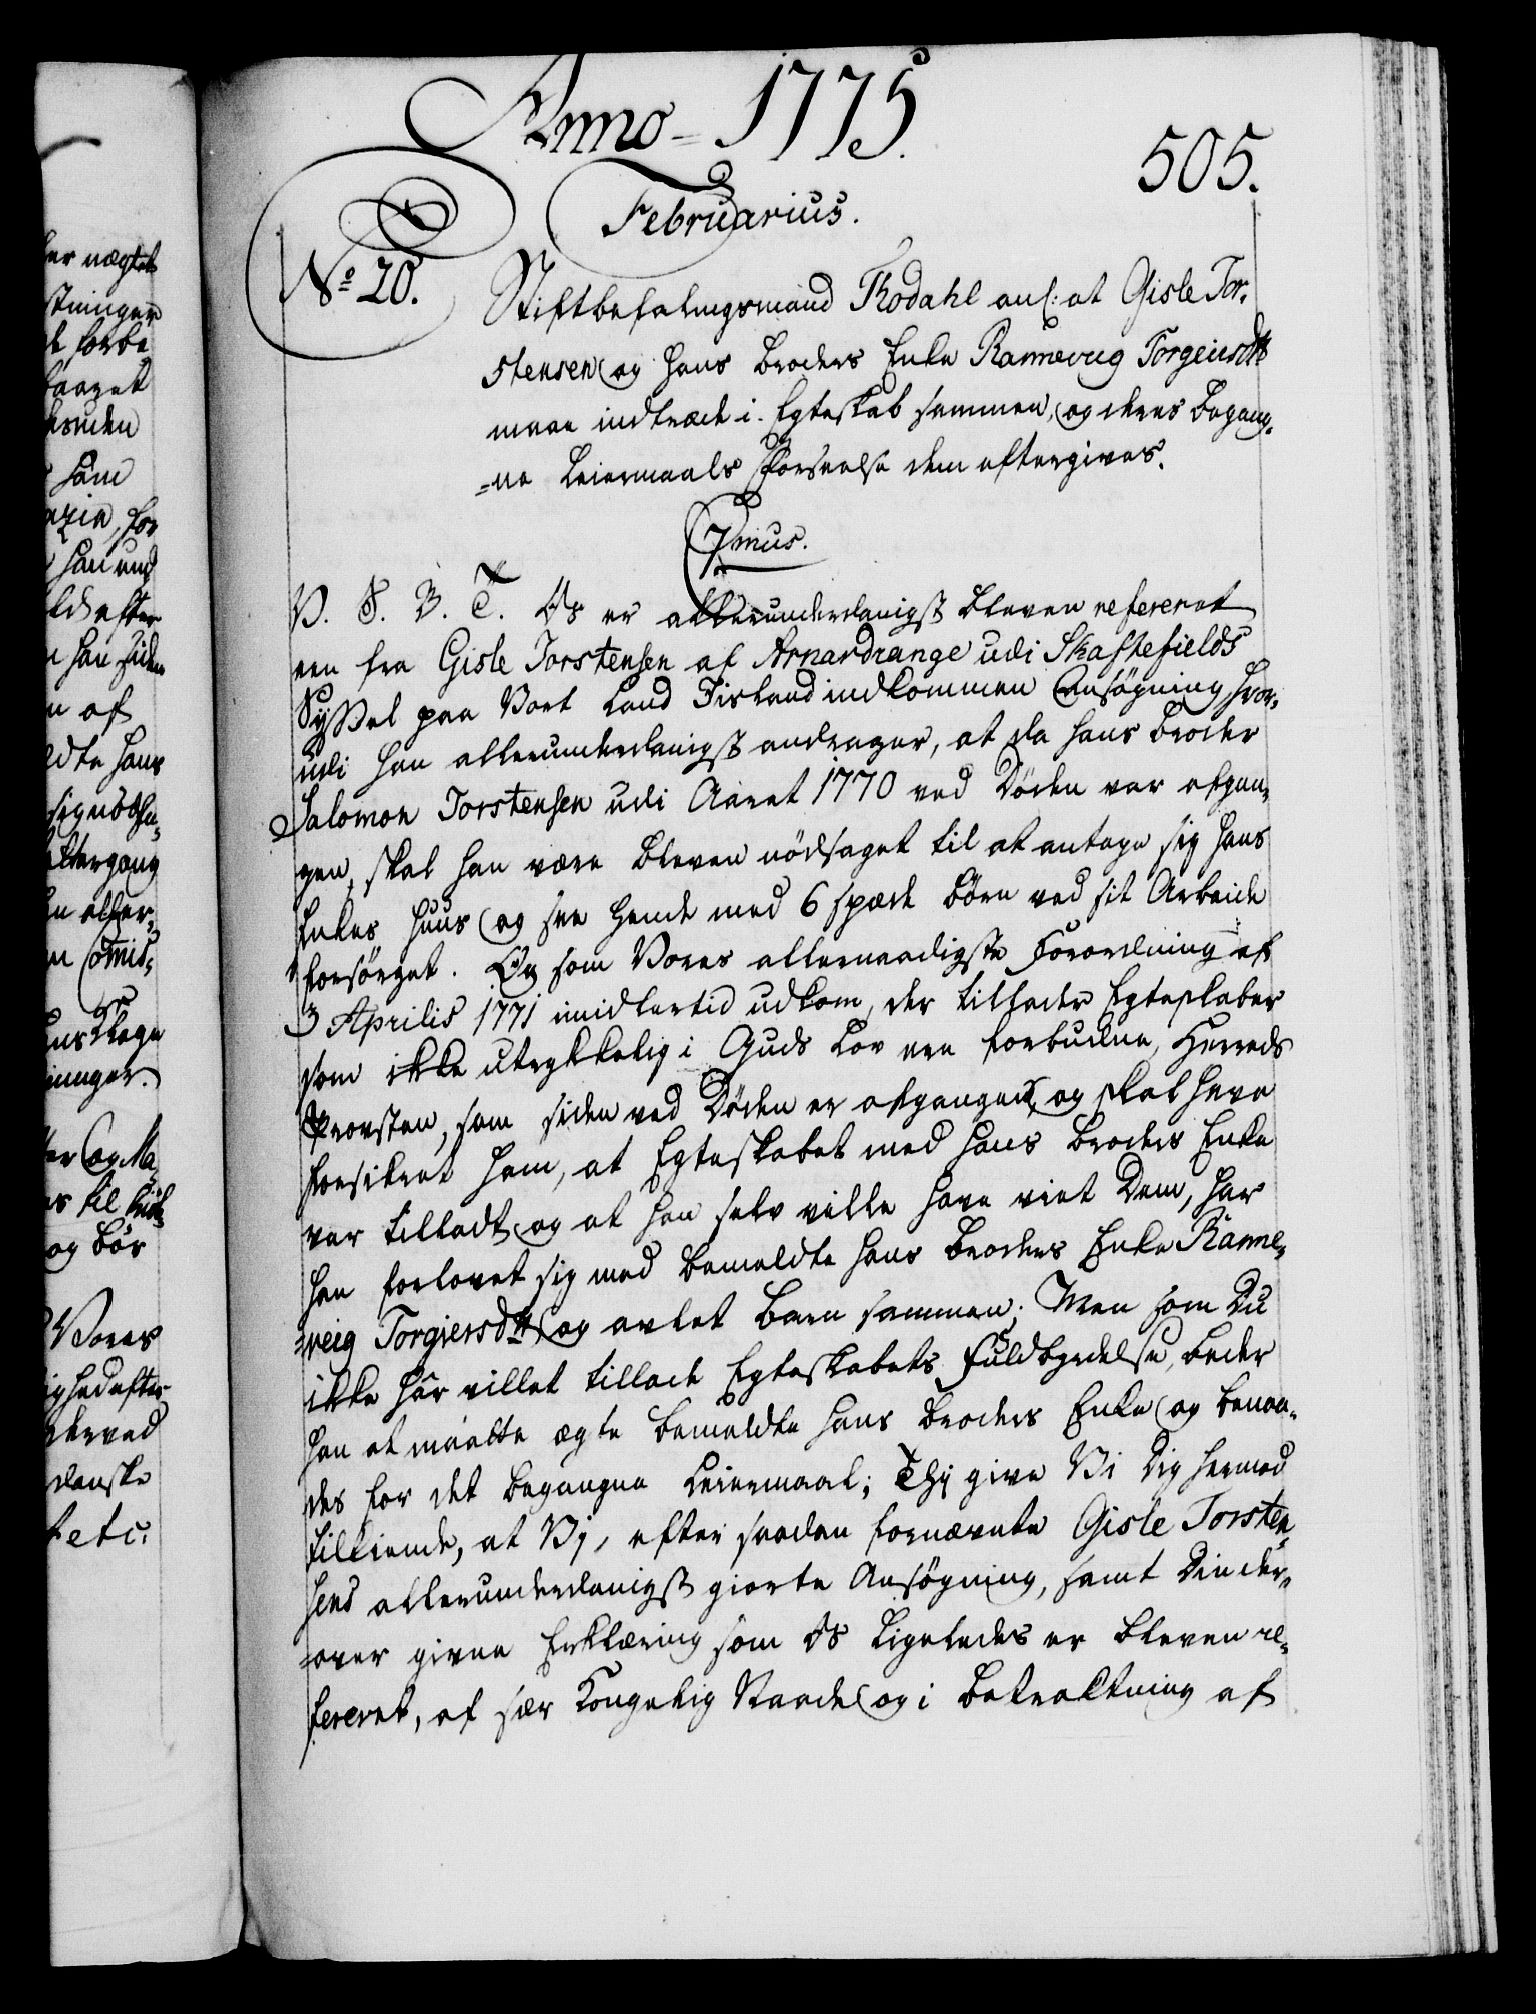 Anno 1775.
505.
Februarius.
No 20.
Stiftbefalingsmand Thodahl anl: at Gisle Tor-
stensen og hans Broders Enke Rannevug Torgeirsdtt
maae indtræde i Egteskab sammen, og deres begang-
=ne Leiermaals Forseelse dem eftergives.
7mus.
V. S. B. T. Os er allerunderdanigst bleven refereret
een fra Gisle Torstensen af Arnardrange udi Skaftefields
Syssel paa Vort Land Iisland indkommen Ansøgning hvor-
udi han allerunderdanigst andrager, at da hans Broder
Salomon Torstensen udi Aaret 1770 ved Døden var afgan-
gen, skal han være bleven nødsaget til at antage sig hans
Enkes Huus og see hende med 6 spæde Børn ved sit Arbeide
forsørget. Og som Vores allernaadigste Forordning af
3 Aprilis 1771 imidlertid udkom, der tillader Egteskaber
som ikke utrykkelig i Guds Lov ere forbudne, Herreds
Provsten, som siden ved Døden er afgangen, og skal have
forsikret ham, at Egteskabet med hans Broders Enke
var tilladt og at han selv ville have viet Dem, har
han forlovet sig med bemeldte hans Broders Enke Ranne-
=veig Torgiersdtt og avlet Barn sammen; Men som Du
ikke har villet tillade Egteskabets Fuldbyrdelse, beder
han at maatte ægte bemeldte hans Broders Enke og benaa-
des for det begangne Leiermaal; Thj give Vi Dig hermed
tilkiende, at Vj, efter saadan fornævnte Gisle Torsten-
sens allerunderdanigst giorte Ansøgning, samt Din der-
=over givne Erklæring som Os ligeledes er bleven re-
fereret, af sær Kongelig Naade og i Betragtning af